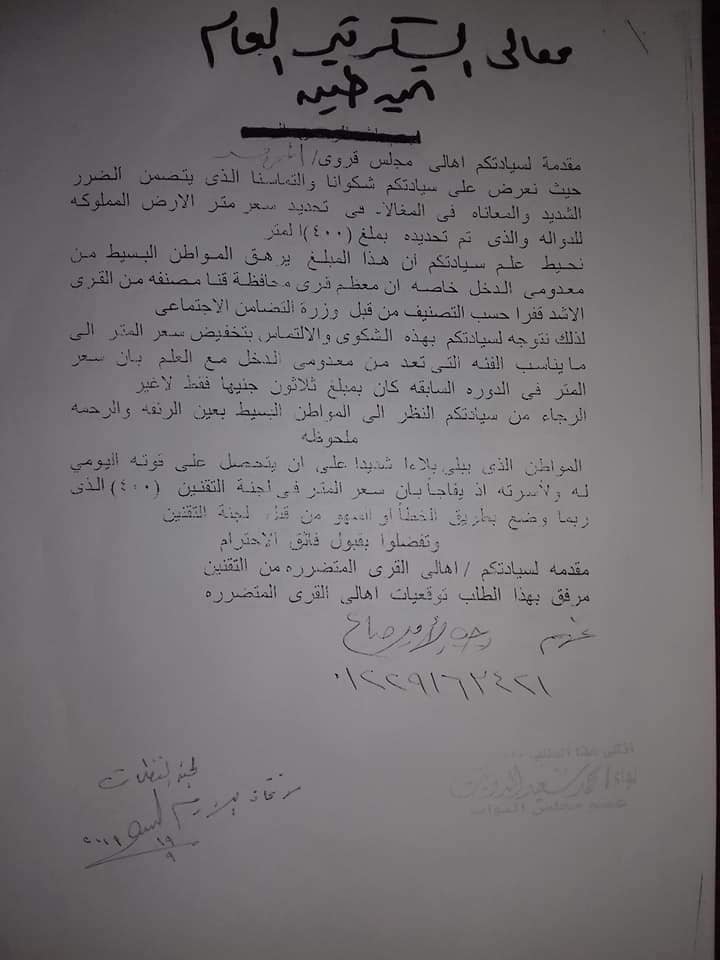 معالى السكرتير العام
تحيه طيبه
مقدمة لسيادتكم اهالى مجلس قروى/
حيث نعرض على سيادتكم شكوانا والتماسنا الذى يتضمن الضرر
الشديد والمعاناه فى المغالاه فى تحديد سعر متر الارض المملوكه
للدواله والذى تم تحديده بملغ (٤٠٠) المتر
نحيط علم سيادتكم أن هذا المبلغ يرهق المواطن البسيط من
معدومى الدخل خاصه ان معظم قرى محافظة قنا مصنفه من القرى
الاشد فقرا حسب التصنيف من قبل وزرة التضامن الاجتماعى
لذلك نتوجه لسيادتكم بهذه الشكوى والالتماس بتخفيض سعر المتر الى
ما يناسب الفئه التى تعد من معدومى الدخل مع العلم بان سعر
المتر فى الدوره السابقه كان بمبلغ ثلاثون جنيها فقط لاغير
الرجاء من سيادتكم النظر الى المواطن البسيط بعين الرئفه والرحمه
ملحوظه
المواطن الذى يبلى بلاءا شديدا على ان يتحصل على قوته اليومي
له ولأسرته اذ يفاجأ بان سعر المتر فى لجنة التقنين (٤٠٠) الذى
ربما وضع بطريق الخطأ او السهو من قبل لجنة التقنين
وتفضلوا بقبول فائق الاحترام
مقدمه لسيادتكم / اهالى القرى المتضرره من التقنين
مرفق بهذا الطلب توقعيات اهالى القرى المتضرره
عنهم
٠١٢٢٩١٦٣٤٢١
لجنة التظلمات
١٩
٩
عضو مجلس النواب